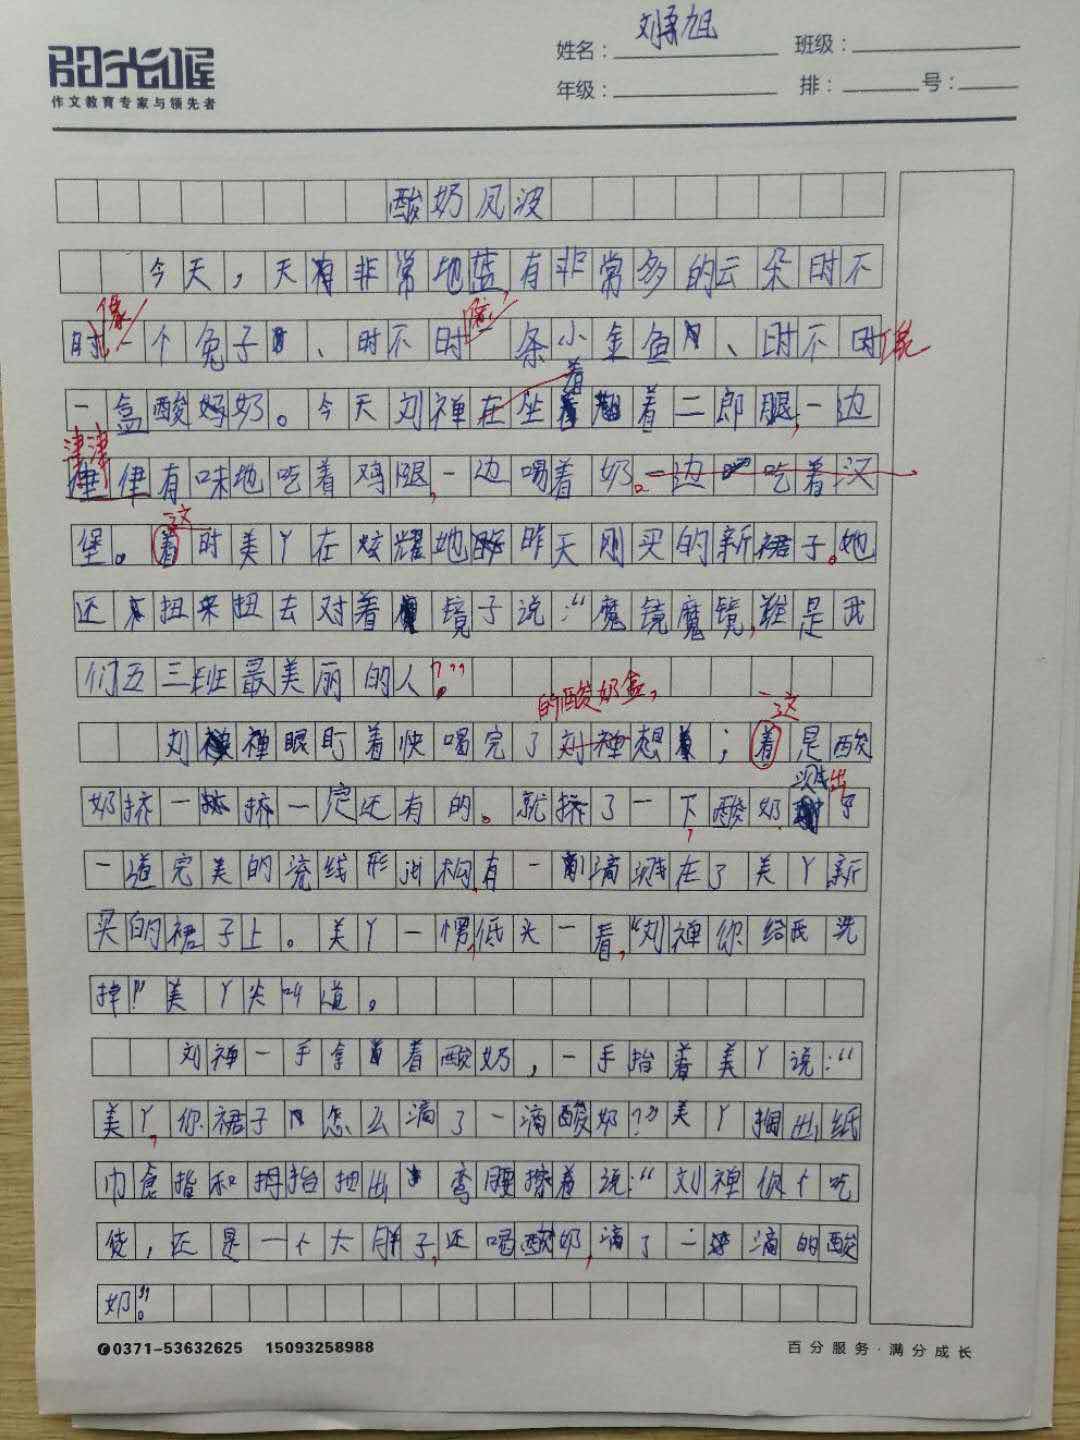 阳光喔
作文教育专家与领先者
姓名：刘 旭 班级：
年级： 排： 号：
酸奶风波
今天，天有非常地蓝，有非常多的云朵时不
时像一个兔子、时不时像一条小金鱼、时不时像
一盒酸奶。今天刘禅在坐着翘着二郎腿，一边
津津有味地吃着鸡腿，一边喝着奶。一边吃着汉
堡。着这时美丫在炫耀她昨天刚买的新裙子。她
还扭来扭去对着镜子说：“魔镜魔镜，谁是我
们五三班最美丽的人？”
刘禅眼盯着快喝完了的酸奶盒，刘禅想；着这是酸
奶挤一挤挤一定还有的。就挤了一下，酸奶溅出了
一道完美的流线形 有一滴溅在了美丫新
买的裙子上。美丫一愣，低头一看，“刘禅你给我洗
掉！”美丫尖叫道。
刘禅一手拿着酸奶，一手指着美丫说：“
美丫，你裙子怎么滴了一滴酸奶？”美丫掏出纸
巾食指和拇指抽出弯腰擦着说：“刘禅你个吃
货，还是一个大胖子，还喝酸奶，滴了一滴的酸
奶”。
0371-53632625 15093258988
百分服务·满分成长